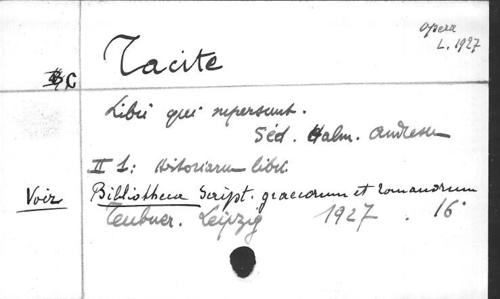 Opera
L. 1927
C
Tacite
Libri qui supersunt.
Séd. Halm. Andresen
II 1: Historiarum libri.
Voir
Bibliotheca Script. graecorum et romanorum
Teubner. Leipzig 1927. 16°